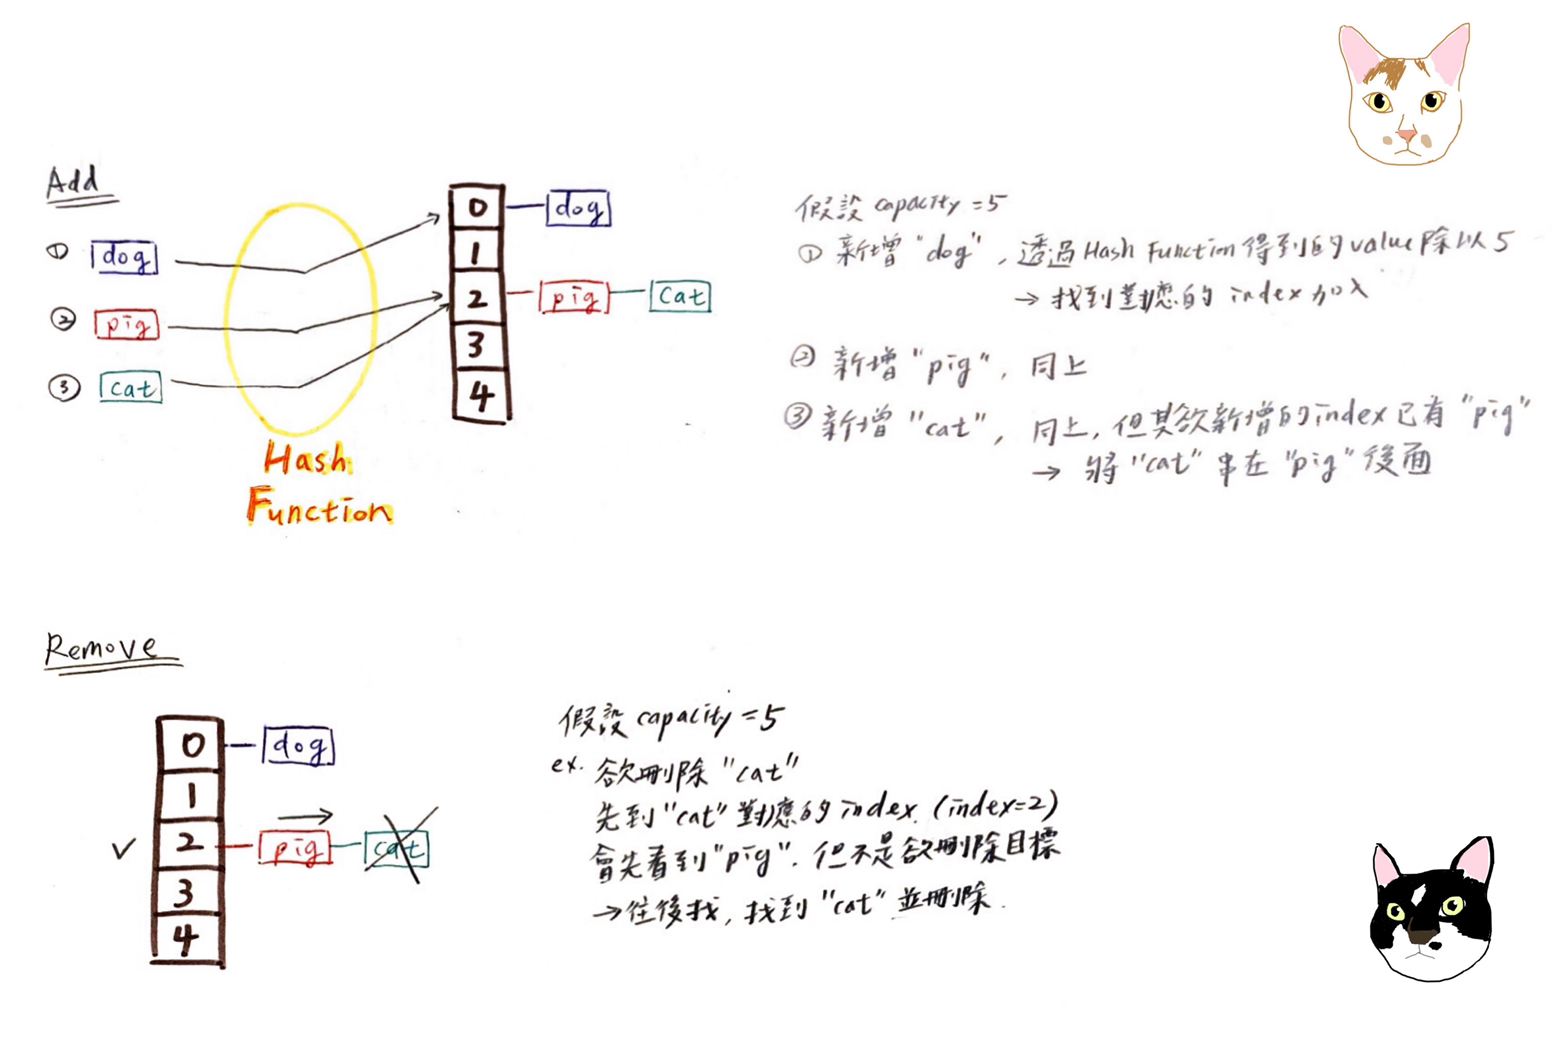 Add
① dog
② pig
③ cat
Hash
Function
0 dog
1
2 pig cat
3
4
假設 capacity = 5
① 新增 "dog", 透過 Hash Function 得到的 value 除以 5
→ 找到對應的 index 加入
② 新增 "pig", 同上
③ 新增 "cat", 同上, 但其欲新增的 index 已有 "pig"
→ 將 "cat" 串在 "pig" 後面
Remove
0 dog
1
2 pig cat
3
4
假設 capacity = 5
ex. 欲刪除 "cat"
先到 "cat" 對應的 index. (index=2)
會先看到 "pig". 但不是欲刪除目標
→ 往後找, 找到 "cat" 並刪除.